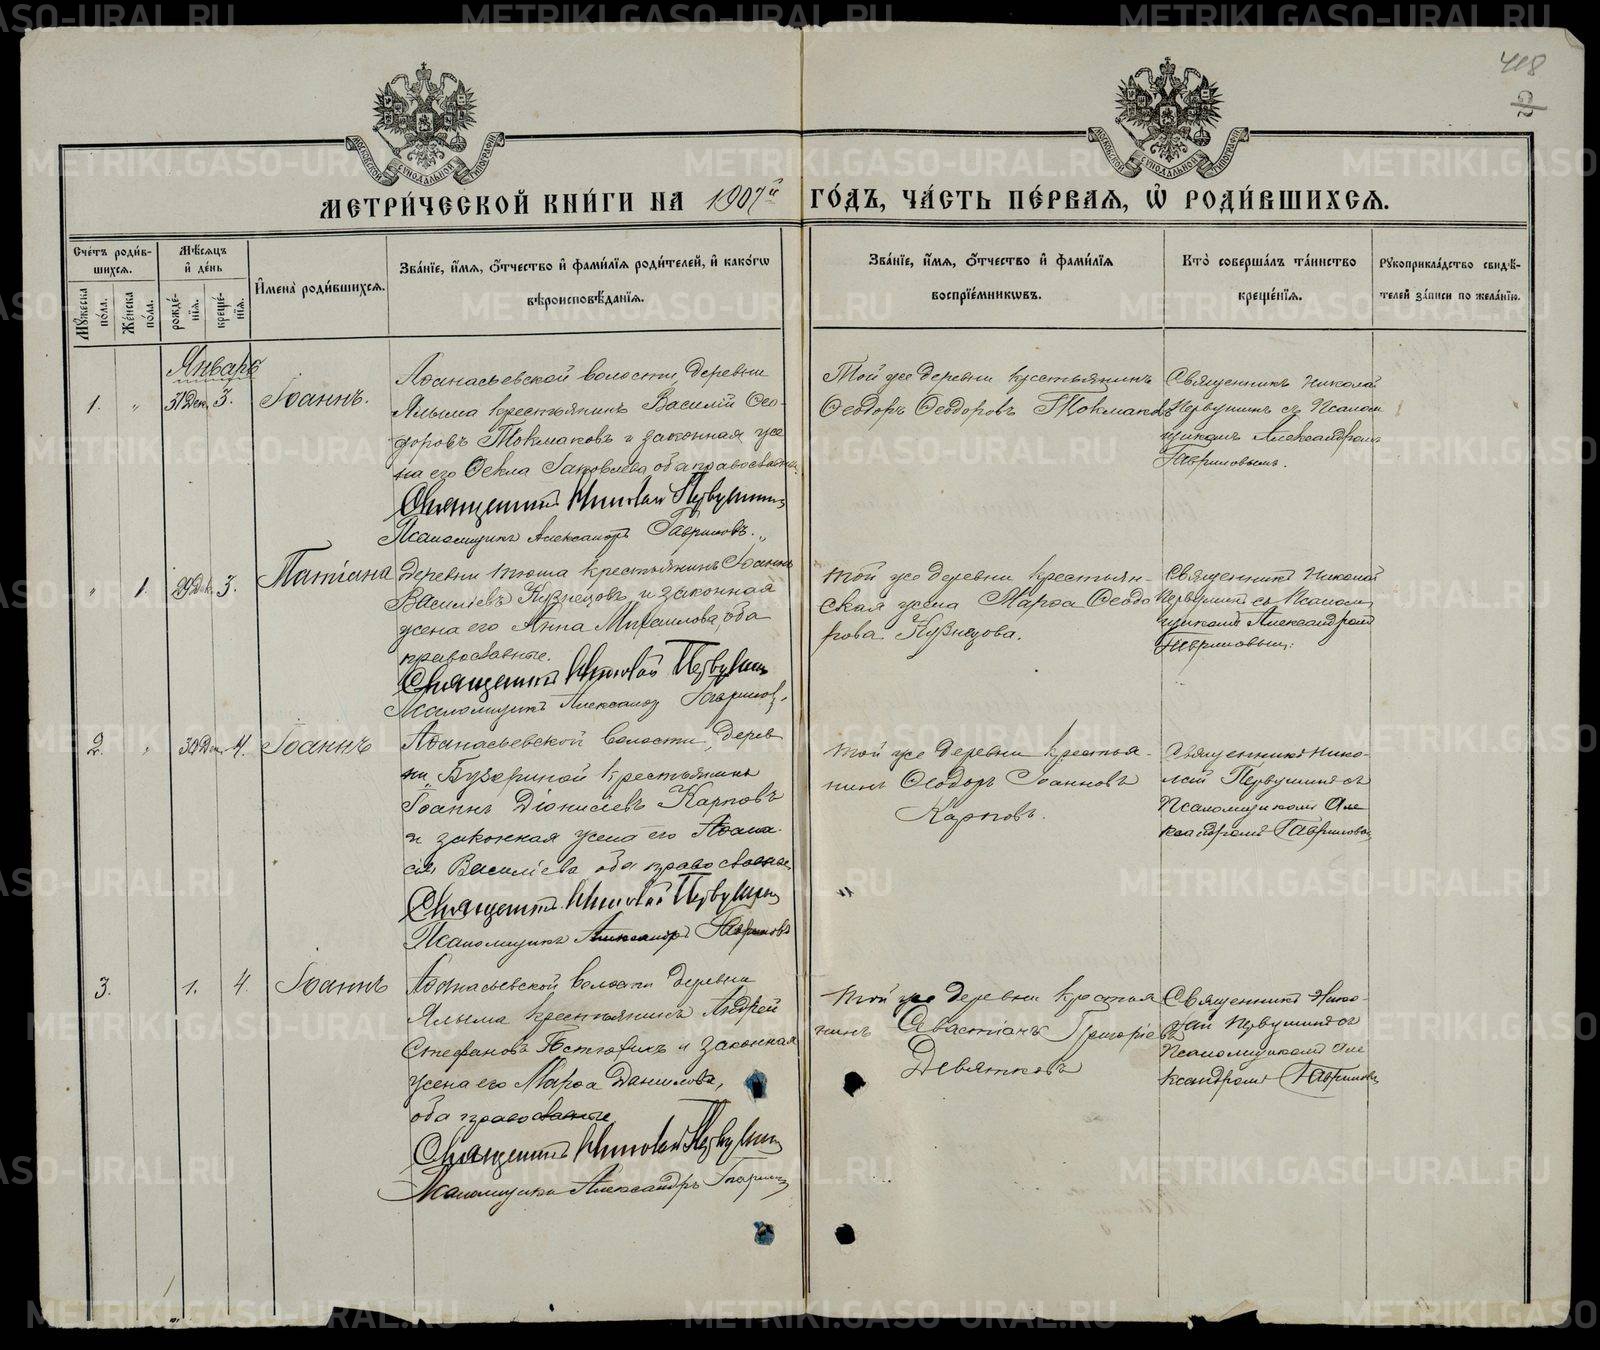 418
2
МОСКОВСКОЙ СѴНОДАЛЬНОЙ ТИПОГРАФІИ
МОСКОВСКОЙ СѴНОДАЛЬНОЙ ТИПОГРАФІИ
МЕТРИ́ЧЕСКОЙ КНИ́ГИ НА 1907й ГО́ДЪ, ЧА́СТЬ ПЕ́РВАЯ, Ѽ РОДИ́ВШИХСЯ.
Сче́тъ роди́в-
шихся.
Мꙋ́жеска по́ла.
Же́нска по́ла.
Мѣ́сяцъ
и҆ де́нь
рожде́-
нїя.
креще́-
нїя.
И҆мена̀ роди́вшихся.
Зва́нїе, и҆́мя, ѻ҆́тчество и҆ фами́лїя роди́телей, и҆ како́гѡ
вѣроисповѣ́данїя.
Зва́нїе, и҆́мя, ѻ҆́тчество и҆ фами́лїя
воспрїе́мникѡвъ.
Кто̀ соверша́лъ та́инство
креще́нїя.
Рꙋкоприкла́дство свидѣ́-
телей за́писи по жела́нїю.
Январь
1. " 31 Дек. 3. Іоаннъ.
Аѳанасьевской волости, деревни
Ялыма крестьянинъ Василій Ѳео-
доровъ Токмаковъ и законная же
на его Ѳекла Іаковлева, оба православн.
Священникъ Николай Первушинъ
Псаломщикъ Александръ Гавриловъ.
Той же деревни крестьянинъ
Ѳеодоръ Ѳеодоровъ Токмаковъ
Священникъ Николай
Первушинъ съ Псалом
щикомъ Александромъ
Гавриловымъ.
" 1. 29 Дек. 3. Татіана
Деревни Тюша крестьянинъ Іоаннъ
Василіевъ Кузнецовъ и законная
жена его Анна Михаилова, оба
православные.
Священникъ Николай Первушинъ
Псаломщикъ Александр Гаврилов.
Той же деревни крестьян-
ская жена Марѳа Ѳеодо
рова Кузнецова.
Священникъ Николай
Первушинъ съ Псалом
щикомъ Александромъ
Гавриловым.
2. " 30 Дек. 4. Іоаннъ
Аѳанасьевской волости, дерев
ни Бухариной крестьянинъ
Іоаннъ Діонисіевъ Карповъ
и законная жена его Аѳана-
сія Василіева, оба православные
Священникъ Николай Первушинъ
Псаломщикъ Александръ Гавриловъ
Той же деревни крестья-
нинъ Ѳеодоръ Іоанновъ
Карповъ.
Священникъ Нико-
лай Первушинъ съ
Псаломщикомъ Але
ксандромъ Гавриловы
3. 1. 4. Іоаннъ
Аѳанасьевской волости деревни
Ялыма крестьянинъ Андрей
Стефановъ и законная
жена его Марѳа Данилова,
оба православные
Священникъ Николай Первушин
Псаломщикъ Александръ Гаврилов
Той же деревни крестья
нинъ Севастіанъ Григоріевъ
Девятковъ
Священникъ Нико-
лай Первушинъ съ
Псаломщикомъ Але
ксандромъ Гавриловы
METRIKI.GASO-URAL.RU